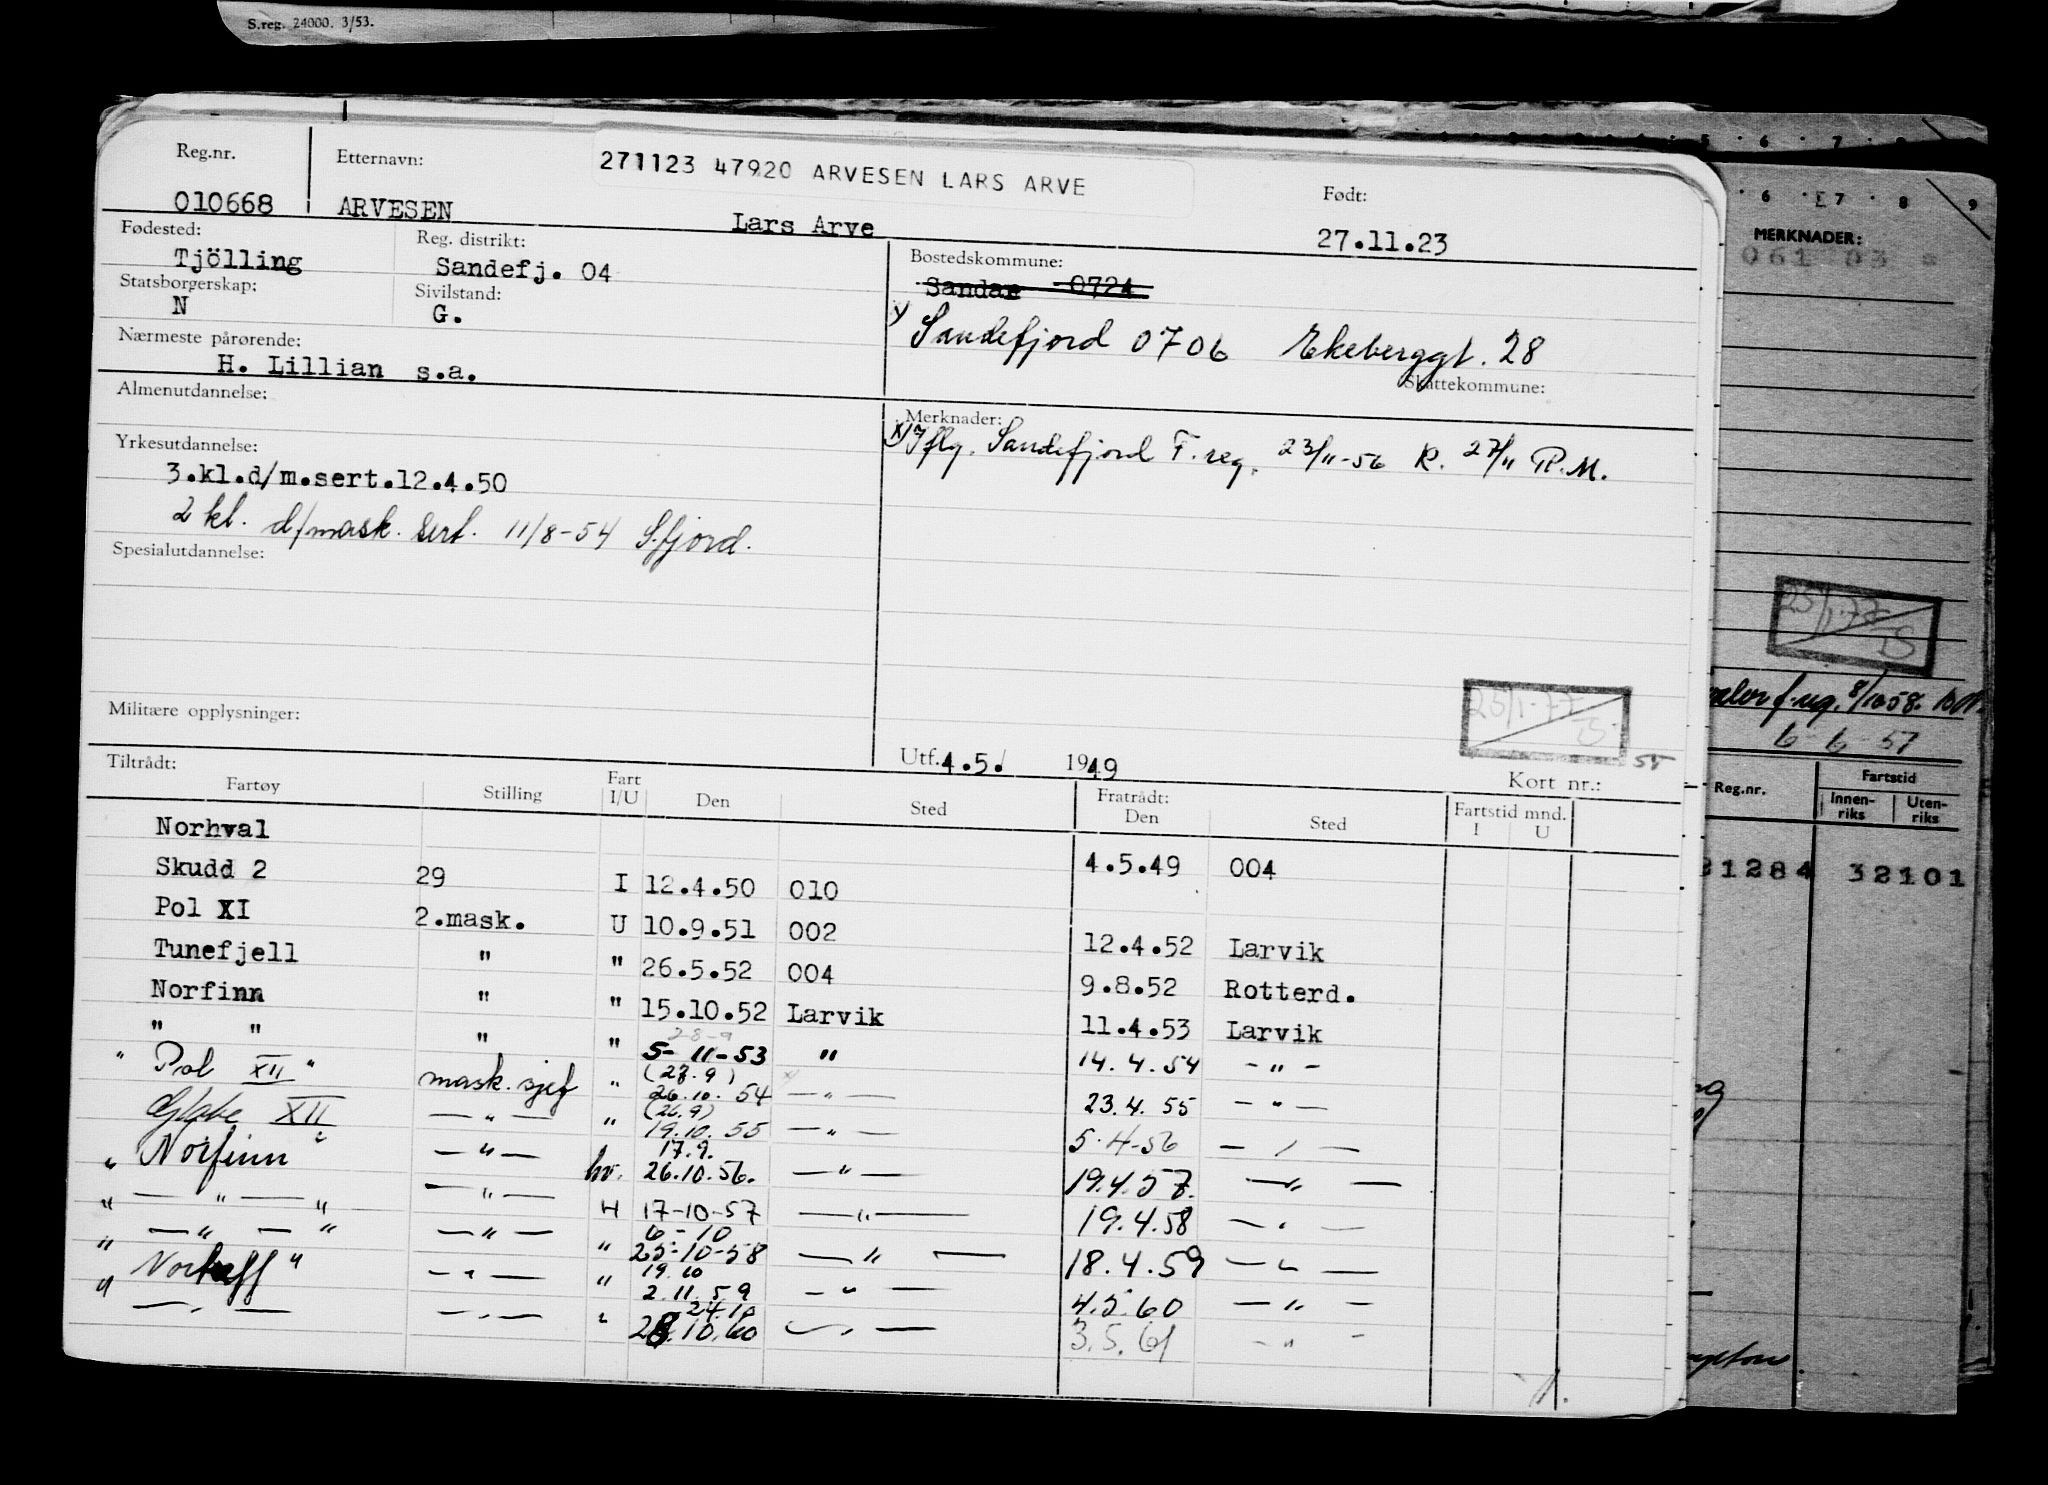 S.reg. 24000. 3/53.
Reg.nr. Etternavn: 271123 47920 ARVESEN LARS ARVE Født:
010668 ARVESEN Lars Arve 27.11.23
Fødested: Reg. distrikt: Bostedskommune:
Tjölling Sandefj. 04 Sandar 0724
Statsborgerskap: Sivilstand:
N G.
Sandefjord 0706 Ekeberggt. 28
Nærmeste pårørende:
H. Lillian s.a.
Skattekommune:
Almenutdannelse: Merknader:
x) Iflg. Sandefjord F.reg. 23/11-56 K. 27/11 R.M.
Yrkesutdannelse:
3.kl.d/m.sert.12.4.50
2 kl. d/mask. sert. 11/8-54 S.fjord.
Spesialutdannelse:
25/1-77
Militære opplysninger:
Utf. 4.5. 1949 55
Tiltrådt: Kort nr.:
Fartøy Stilling Fart I/U Den Sted Fratrådt: Den Sted Fartstid mnd. I U
Norhval 4.5.49 004
Skudd 2 29 I 12.4.50 010
Pol XI 2.mask. U 10.9.51 002 12.4.52 Larvik
Tunefjell " " 26.5.52 004 9.8.52 Rotterd.
Norfinn " " 15.10.52 Larvik 11.4.53 Larvik
28-9
" " " " 5-11-53 " 14.4.54 - " -
(27.9)
" Pol XII " mask. sjef " 26.10.54 — " — 23.4.55 — " —
(26.9)
Globe XII — " — " 19.10.55 — " — 5-4-56 — " —
17.9.
" Norfinn " — " — hv. 26.10.56. — " — 19.4.57. — " —
" — " — " — " — H 17-10-57 — " — 19.4.58 — " —
6-10
" — " — " — " — " 25-10-58 — " — 18.4.59 — " —
19.10
" Norkaff " — " — " 2.11.59 — " — 4.5.60 — " —
24.10
" — " — — " — " 28.10.60 — " — 3.5.61 - " -
5 6 7 8
6 7 8 9
MERKNADER:
061 03
25/1-77
f.reg. 8/10 58.
6-6-57
Reg.nr. Fartstid
Innen-riks Uten-riks
21284 32101